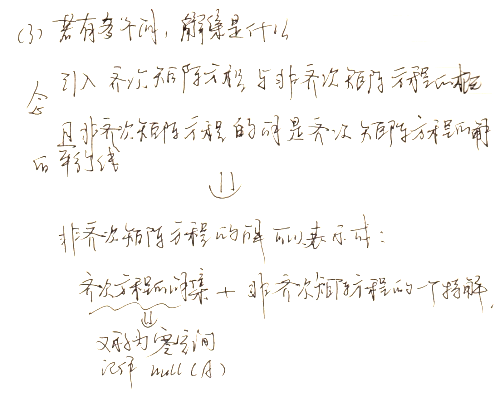 (3) 若有多个解，解集是什么
引入 齐次矩阵方程 与非齐次矩阵方程的概
念
且非齐次矩阵方程的解是齐次矩阵方程的解
的平行线
⇓
非齐次矩阵方程的解可以表示成：
齐次方程的解集 + 非齐次矩阵方程的一个特解.
⇓
又称为零空间
记作 null(A)